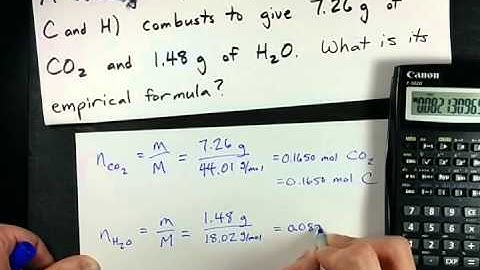 C and H) combusts to give 7.26 g of
CO₂ and 1.48 g of H₂O. What is its
empirical formula?
n CO₂ = m/M = 7.26 g / 44.01 g/mol = 0.1650 mol CO₂
= 0.1650 mol C
n H₂O = m/M = 1.48 g / 18.02 g/mol = 0.082
Canon